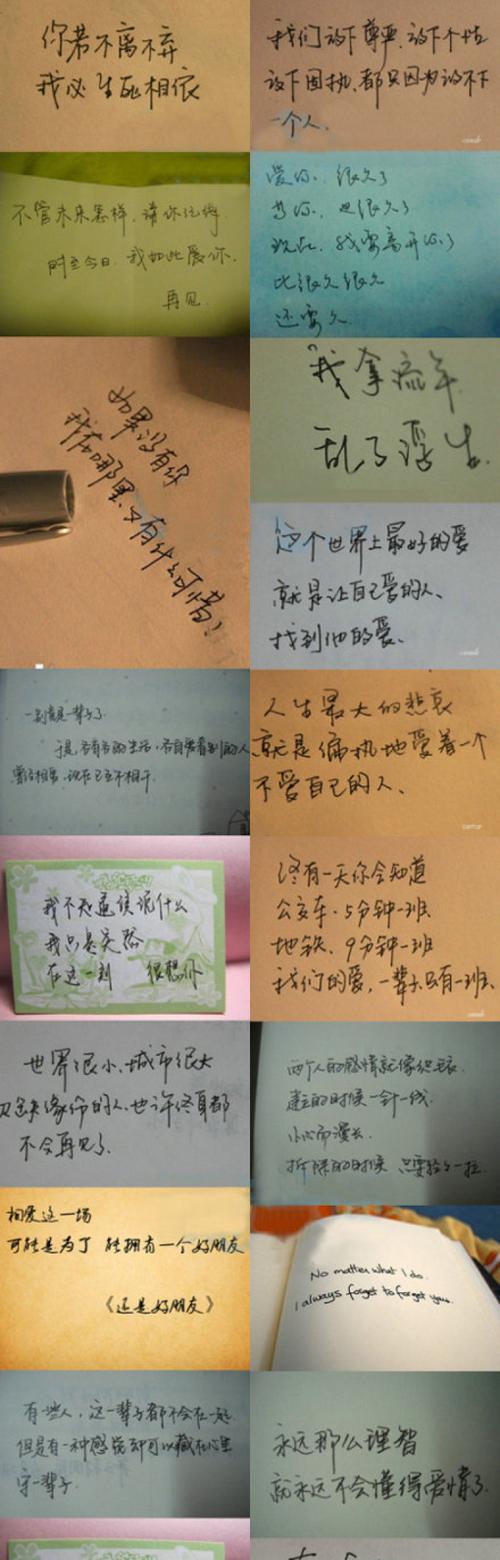 你若不离不弃
我必生死相依
我们放下尊严、放下个性
放下固执、都只因为放不下
一个人.
不管未来怎样,请你记得.
时至今日.我如此爱你.
再见.
爱你.很久了
等你.也很久了
现在.我要离开你了
比很久很久
还要久
如果没有你
我在哪里又有什么可惜!
我拿流年
乱了浮生.
这个世界上最好的爱
就是让自己爱的人、
找到他的爱.
一别就是一辈子了.
于是.各有各的生活.各自爱着别的人
曾经相爱.现在已互不相干.
人生最大的悲哀
就是偏执地爱着一个
不爱自己的人、
我不知道该说什么
我只是突然
在这一刻 很想你
终有一天你会知道
公交车.5分钟一班
地铁、9分钟一班
我们的爱,一辈子只有一班、
世界很小、城市很大
缘份的人、也许终身都
不会再见了.
两个人的感情就像织毛衣.
建立的时候一针一线.
小心而漫长.
拆除的时候 只要轻轻一拉.
相爱这一场
可能是为了 能拥有一个好朋友
《还是好朋友》
No matter what I do.
I always forget to forget you.
有些人,这一辈子都不会在一起.
但是有一种感觉却可以藏在心里
守一辈子.
永远那么理智
就永远不会懂得爱情了.